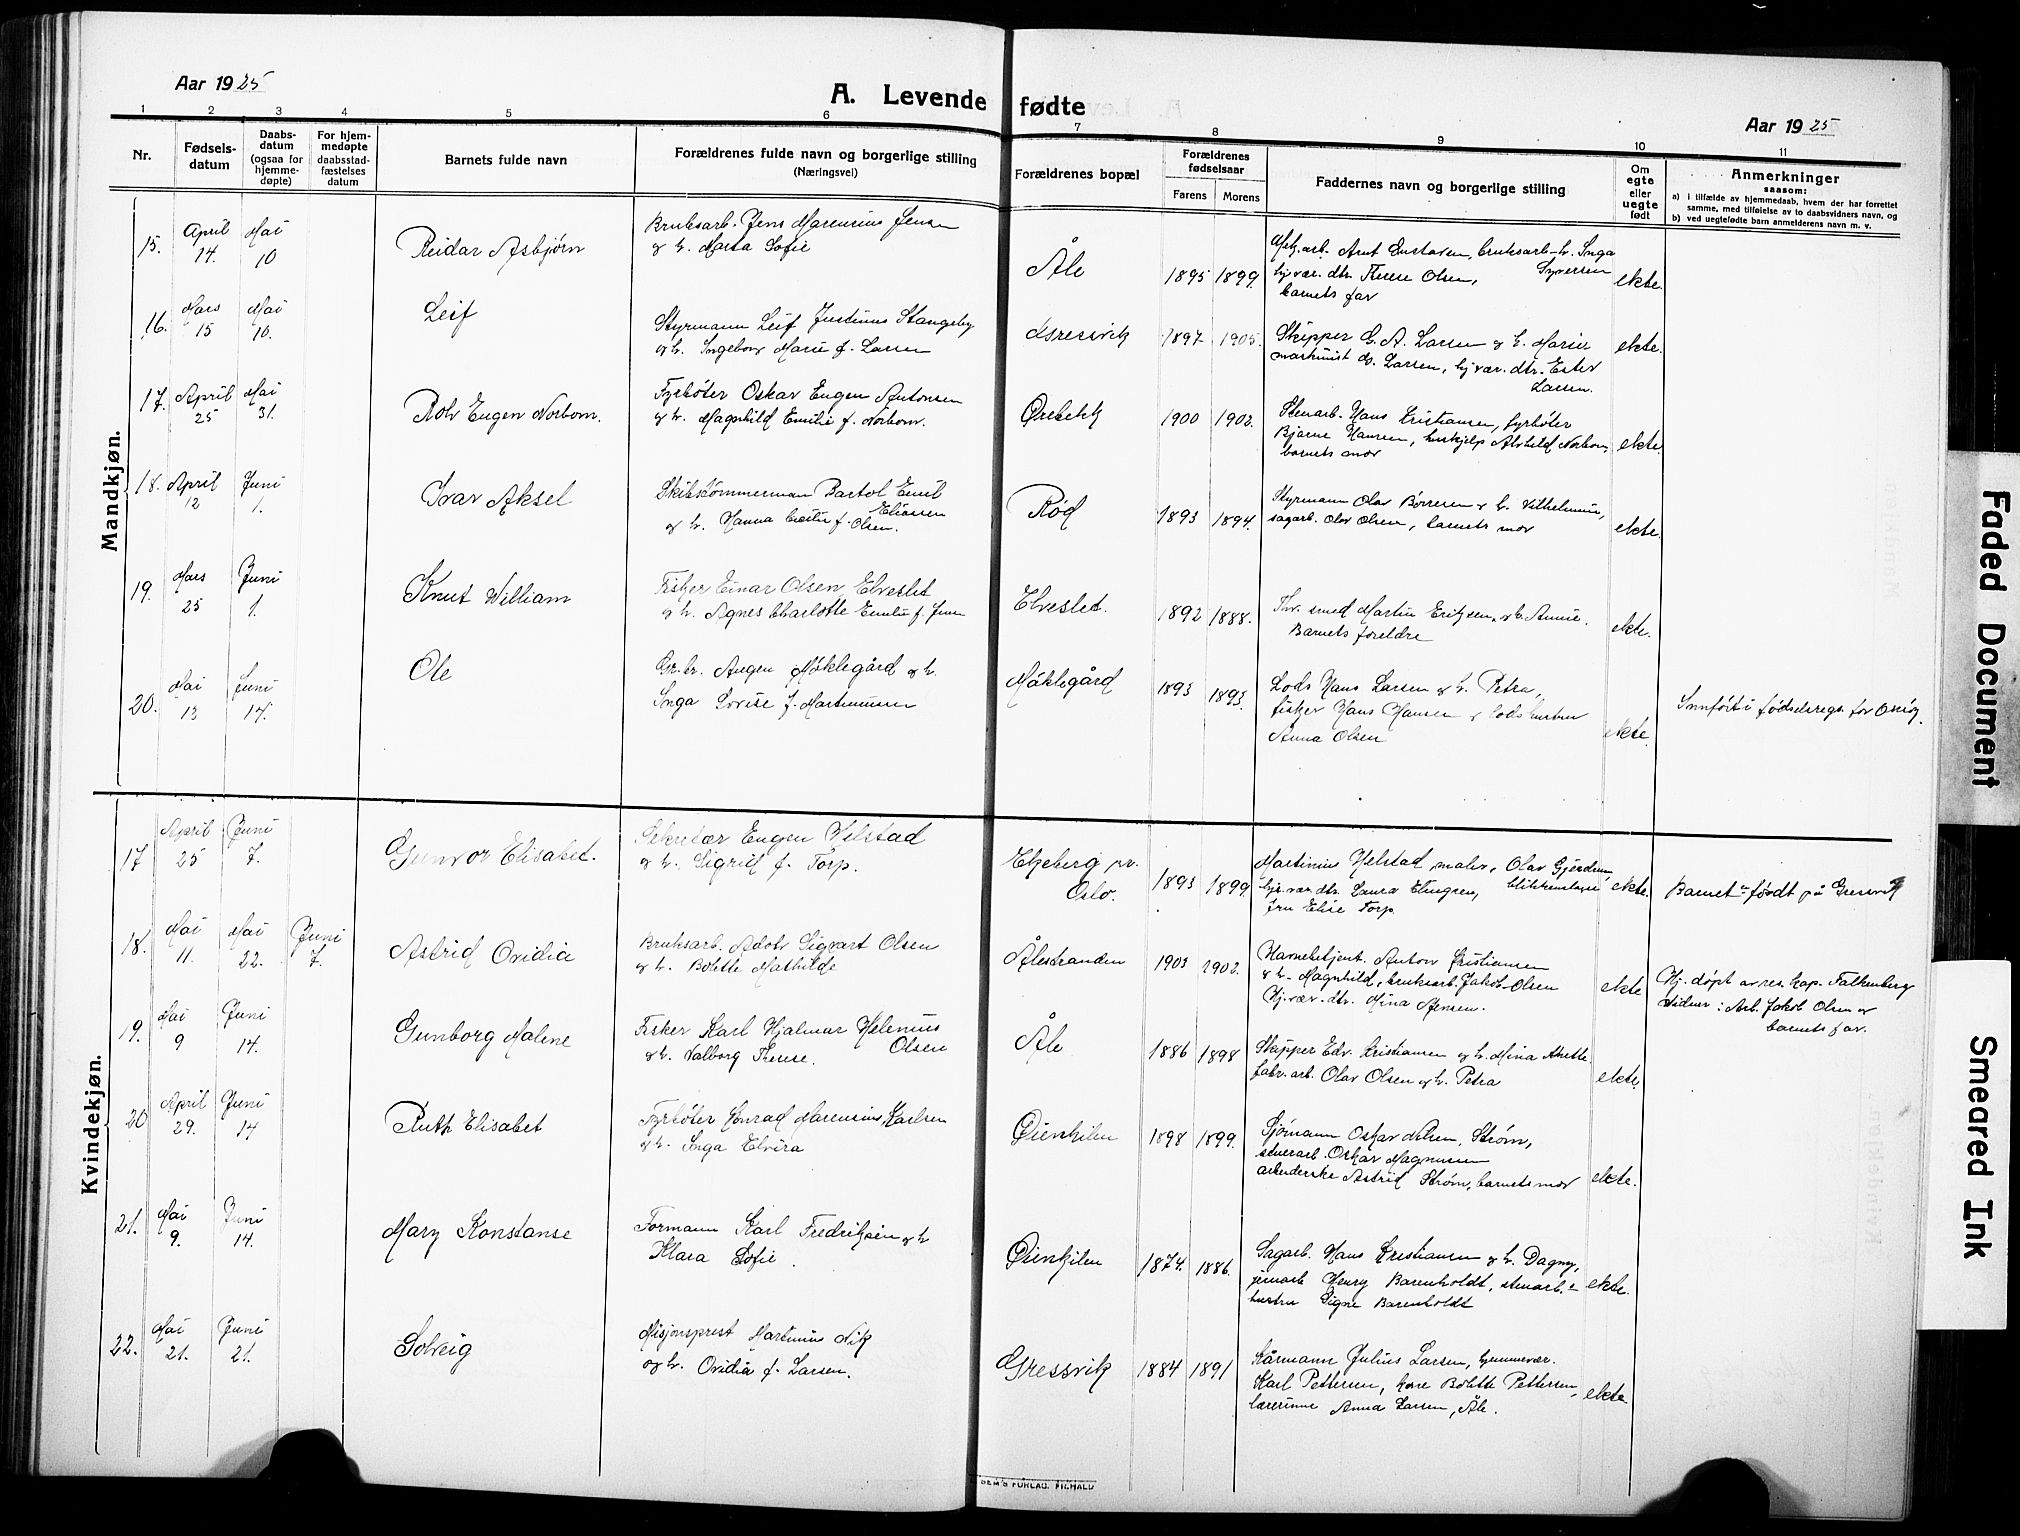 Aar 1925
A. Levende fødte
Aar 1925
1 2 3 4 5 6 7 8 9 10 11
Nr.
Fødsels-
datum
Daabs-
datum
(ogsaa for
hjemme-
døpte)
For hjem-
medøpte
daabsstad-
fæstelses
datum
Barnets fulde navn
Forældrenes fulde navn og borgerlige stilling
(Næringsvei)
Forældrenes bopæl
Forældrenes
fødselsaar
Farens Morens
Faddernes navn og borgerlige stilling
Om
egte
eller
uegte
født
Anmerkninger
saasom:
a) i tilfælde av hjemmedaab, hvem der har forrettet
samme, med tilføielse av to daabsvidners navn, og
b) ved uegtefødte barn anmelderens navn m. v.
Mandkjøn.
15. April 14. Mai 10 Reidar Asbjørn
Bruksarb. Jens Marensius Jensen
og h. Marta Sofie
Åle 1895 1899.
arb. Arnt Gustavsen, bruksarb. h. Inga
Syversen
hj.vær. dtr. Therese Olsen,
barnets far
ekte.
16. Mars 15 Mai 10. Leif
Styrmann Leif Justinus Stangeby
og h. Ingeborg Marie f. Larsen
Gressvik 1897 1905.
Skipper E. A. Larsen og h. Marie
maskinist O. Larsen, hj.vær. dtr. Ester
Larsen.
ekte.
17. April 25 Mai 31. Rolv Eugen Norbom.
Fyrbøter Oskar Eugen Antonsen
og h. Magnhild Emilie f. Norbom.
Ørebekk 1900 1902.
Stenarb. Hans Kristiansen, fyrbøter
Bjarne Hansen, hushjelp Alvhild Norbom,
barnets mor
ekte.
18. April 12 Juni 1. Ivar Aksel
Skibstømmermann Bartol Emil
Eliassen
og h. Hanna Cecilie f. Olsen.
Rød 1893 1894.
Styrmann Olav Børresen og h. Vilhelmine,
sagarb. Olav Olsen, barnets mor
ekte.
19. Mars 25 Juni 1. Knut William
Fisker Einar Olsen Elveslet
og h. Agnes Charlotte Emilie f. Jensen
Elveslet. 1892 1888.
smed Martin Eriksen og h. Annie.
Barnets foreldre
ekte.
20. Mai 13 Juni 14. Ole
Gr.br. Møklegård og h.
Inga Lovise f. Martinussen
Møklegård 1893 1893.
Lods Hans Larsen og h. Petra,
fisker Hans Hansen, lodshustru
Anna Olsen
ekte.
Innført i fødselsregs. for Onsøy.
Kvindekjøn.
17 April 25 Juni 7. Gunvor Elisabet.
Sekretær Eugen Helstad
og h. Sigrid f. Torp.
Ekeberg pr.
Oslo.
1893 1899
Martinius Helstad, maler, Olav Gjerdrum,
blikkenslager
hj.vær. dtr. Laura Ellingsen,
fru Elise Torp.
ekte.
Barnet er født på Gressvik
18. Mai 11. Mai 22. Juni 7. Astrid Ovidia
Bruksarb. Adolv Sigvart Olsen
og h. Bolette Mathilde
Ålestranden 1903 1902.
Havnebetjent. Anton Kristiansen
og h. Magnhild, bruksarb. Jakob Olsen
Hj.vær. dtr. Mina Jensen.
ekte
Hj. døpt av res. kap. Falkenberg
Vidner: Arb. Jakob Olsen og
barnets far.
19. Mai 9 Juni 14. Gunborg Malene
Fisker Karl Hjalmar Helenius
Olsen
og h. Valborg Therese.
Åle 1886 1898
Skipper Edv. Kristiansen og h. Mina Anette.
fabr. arb. Olav Olsen og h. Petra
ekte
20 April 29. Juni 14 Ruth Elisabet
Fyrbøter Konrad Marensius Karlsen
og h. Inga Elvira
Øienkilen 1898 1899.
Sjømann Oskar Nilsen, Strøm,
stenarb. Oskar Magnussen
arbeiderske Astrid Strøm, barnets mor
ekte.
21. Mai 9. Juni 14. Mary Konstanse
Formann Karl Fredriksen og h.
Klara Sofie.
Øienkilen 1874. 1886.
Sagarb. Hans Kristiansen og h. Dagny,
jernarb. Henry Barenholdt, stenarb.
hustru Signe Barenholdt
ekte.
22. Mai 21. Juni 21. Solveig
Misjonsprest Martinius Vik
og h. Ovidia f. Larsen.
Gressvik 1884 1891
Kårmann Julius Larsen, hjemmevær.
Karl Pettersen, kone Bolette Pettersen,
lærerinne Anna Larsen, Åle.
ekte
SEM'S FORLAG, FR.HALD
Faded Document
Smeared Ink